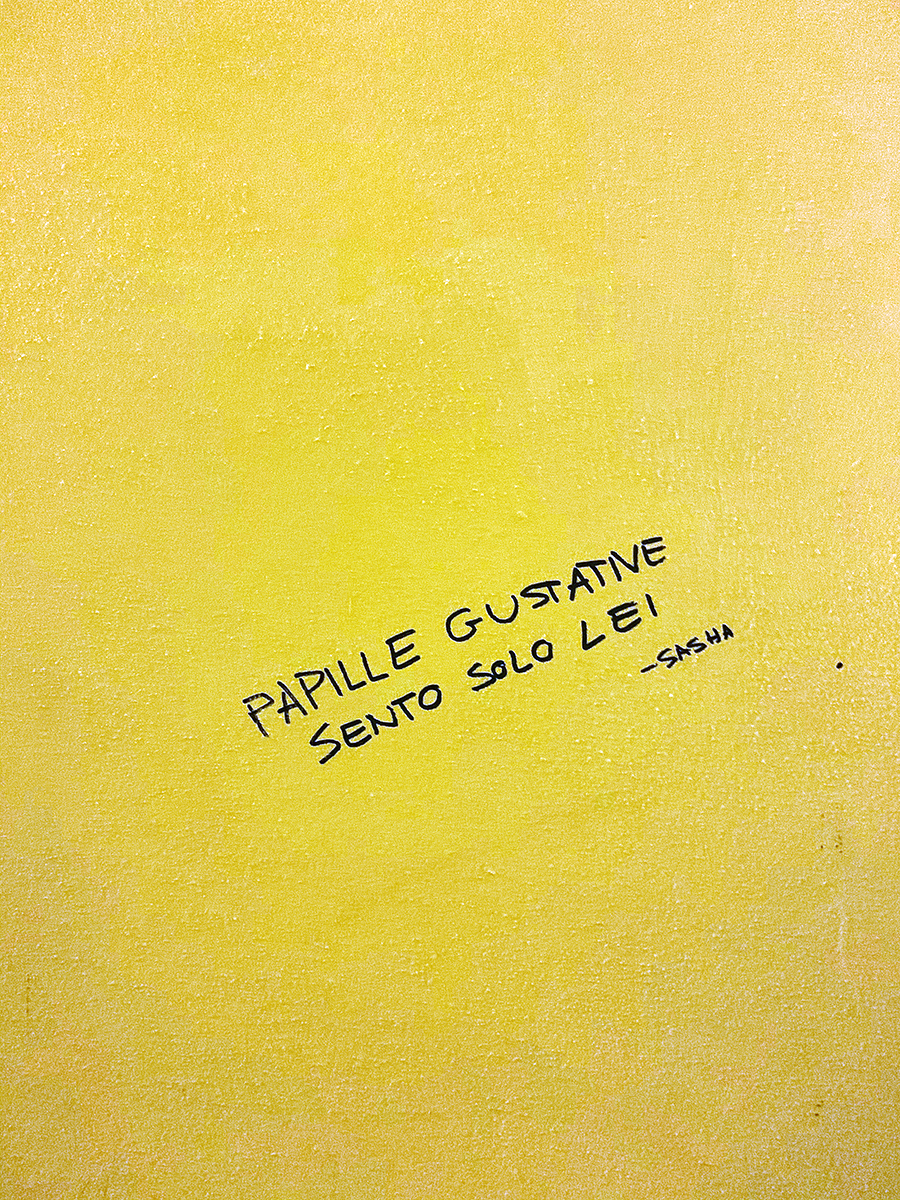 PAPILLE GUSTATIVE
SENTO SOLO LEI
-SASHA